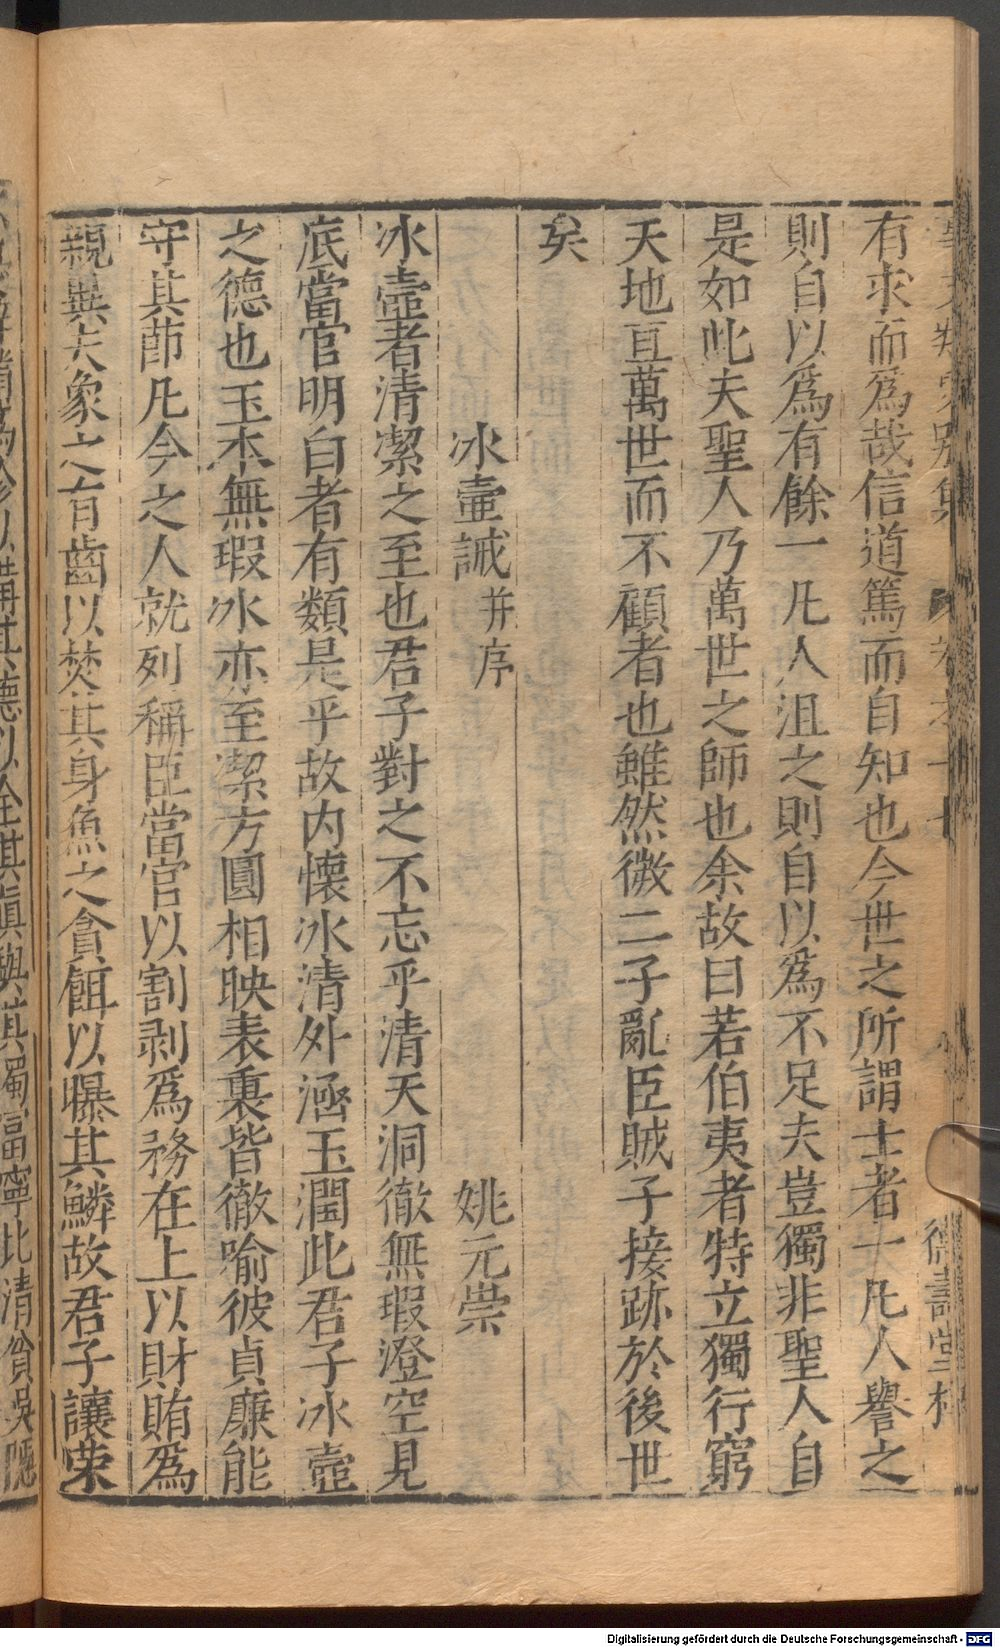 有求而爲哉信道篤而自知也今世之所謂士者一凡人譽之
則自以爲有餘一凡人沮之則自以爲不足夫豈獨非聖人自
是如此夫聖人乃萬世之師也余故曰若伯夷者特立獨行窮
天地亘萬世而不顧者也雖然微二子亂臣賊子接跡於後世
矣
冰壺誡并序 姚元崇
冰壺者清潔之至也君子對之不忘乎清天洞徹無瑕澄空見
底當官明白者有類是乎故内懷冰清外涵玉潤此君子冰壺
之德也玉本無瑕冰亦至潔方圓相映表裏皆徹喻彼貞廉能
守其莭凡今之人就列稱臣當官以割剥爲務在上以財賄爲
親異夫象之有齒以焚其身魚之貪餌以曝其鱗故君子讓荣
Digitalisierung gefördert durch die Deutsche Forschungsgemeinschaft - DFG